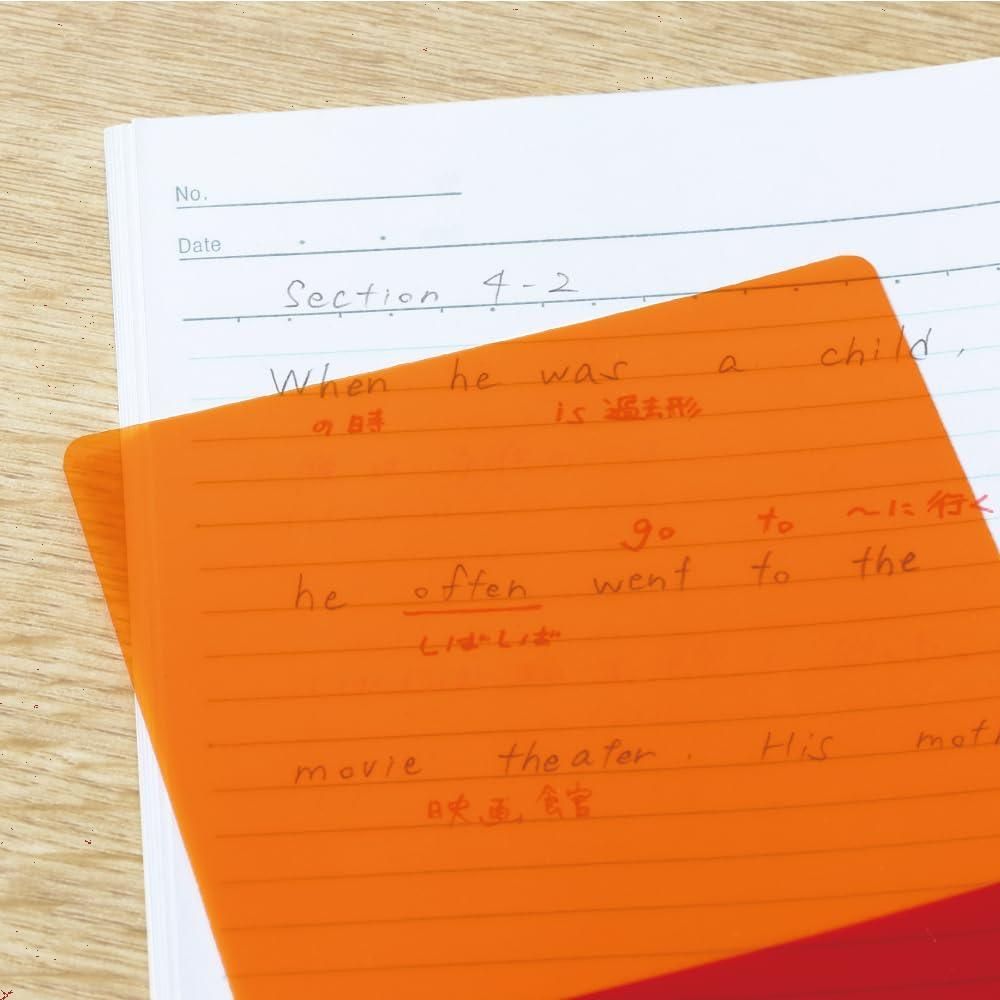 No.
Date
Section 4-2
When he was a child,
の時 is 過去形
go to 〜に行く
he often went to the
しばしば
movie theater. His moth
映画館